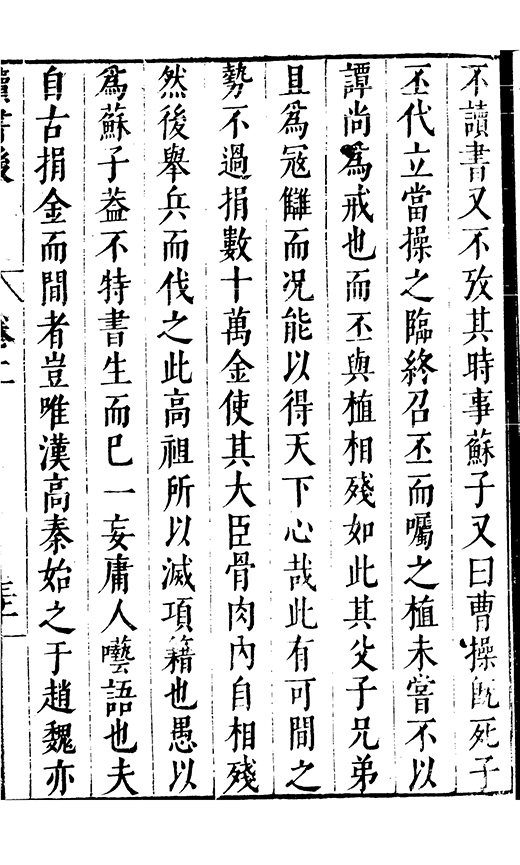 不讀書又不攷其時事蘇子又曰曹操旣死子
丕代立當操之臨終召丕而囑之植未嘗不以
譚尚爲戒也而丕與植相殘如此其父子兄弟
且爲寇讎而况能以得天下心哉此有可間之
勢不過捐數十萬金使其大臣骨肉內自相殘
然後舉兵而伐之此高祖所以滅項籍也愚以
爲蘇子葢不特書生而已一妄庸人囈語也夫
自古捐金而間者豈唯漢高秦始之于趙魏亦
讀書後